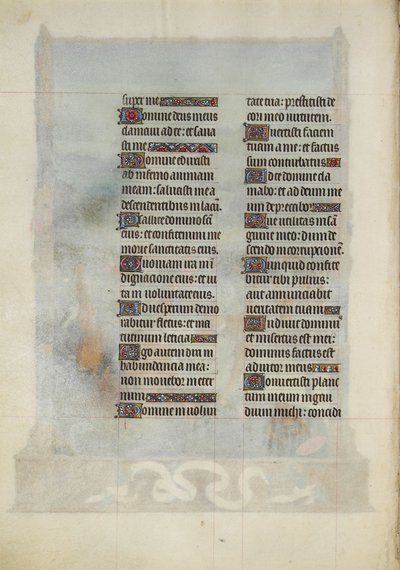 super me
Domine deus meus
clamaui ad te: et sana
sti me
Domine eduxisti
ab inferno animam
meam: saluasti me a
descendentibus in lacū.
Psallite domino sācti
eius: et confitemini me
morie sanctitatis eius.
Quoniam ira in ī
dignacione eius: et ui
ta in uoluntate eius.
Ad uesperum demo
rabitur fletus: et ma
tutinum leticia
Ego autem dixi in
habundencia mea:
non mouebor in eter
num
Domine in uolun
tate tua: prestitisti de
cori meo uirtutem.
Auertisti faciem
tuam a me: et factus
sum conturbatus
Ad te domine cla
mabo: et ad deum me
um deprecabor
Que utilitas in sā
guine meo: dum de
scendo in corruptionē.
Nunquid confite
bitur tibi puluis:
aut annunciabit
ueritatem tuam
Audiuit dominus
et misertus est mei:
dominus factus est
adiutor meus
Conuertisti planc
tum meum in gau
dium michi: concidi